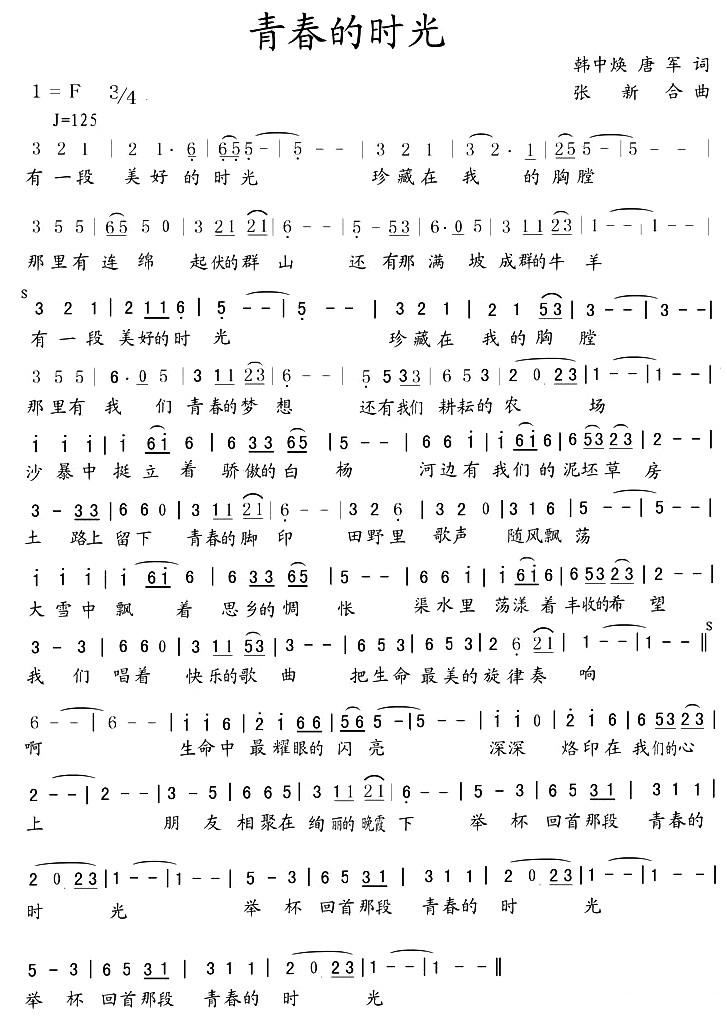 青春的时光
韩中焕 唐军 词
1 = F 3/4
张新合曲
J=125
3 2 1 | 2 1· 6 | 6 5 5 5 - | 5 - - | 3 2 1 | 3 2· 1 | 2 5 5 5 - | 5 - - |
有一段 美好的时光 珍藏在 我 的胸膛
3 5 5 | 6 5 5 0 | 3 2 1 2 1 | 6 - - | 5 - 5 3 | 6·0 5 | 3 1 1 2 3 | 1 - - | 1 - - |
那里有 连绵 起伏的群山 还有那满坡成群的牛羊
S
3 2 1 | 2 1 1 6 | 5 - - | 5 - - | 3 2 1 | 2 1 5 3 | 3 - - | 3 - - |
有一段 美好的时光 珍藏在 我的胸膛
3 5 5 | 6·0 5 | 3 1 1 2 3 | 6 - - | 5 5 3 3 | 6 5 3 | 2 0 2 3 | 1 - - | 1 - - |
那里有 我们 青春的梦想 还有我们 耕耘的农场
i i i | i 6 i | 6 3 3 6 5 | 5 - - | 6 6 i | i 6 i 6 | 6 5 3 2 3 | 2 - - |
沙暴中 挺立着 骄傲的白杨 河边有 我们的泥坯草房
3 - 3 3 | 6 6 0 | 3 1 1 2 1 | 6 - - | 3 2 6 | 3 2 0 | 3 1 6 | 5 - - | 5 - - |
土 路上 留下 青春的脚印 田野里 歌声 随风飘荡
i i i | i 6 i | 6 3 3 6 5 | 5 - - | 6 6 i | i 6 i 6 | 6 5 3 2 3 | 5 - - |
大雪中 飘着 思乡的惆怅 渠水里 荡漾着丰收的希望
3 - 3 | 6 6 0 | 3 1 1 5 3 | 3 - - | 6 5 3 | 6 5 3 | 2 6 2 1 | 1 - - | 1 - - ‖ S
我们 唱着 快乐的歌曲 把生命 最美的旋律奏响
6 - - | 6 - - | i i 6 | 2 i 6 6 | 5 6 5 - | 5 - - | i i 0 | 2 i 6 | 6 5 3 2 3 |
啊 生命中 最耀眼的闪亮 深深 烙印在 我们的心
2 - - | 2 - - | 3 - 5 | 6 6 5 | 3 1 1 2 1 | 6 - - | 5 - 3 | 6 5 3 1 | 3 1 1 |
上 朋友 相聚在 绚丽的晚霞下 举杯 回首那段 青春的
2 0 2 3 | 1 - - | 1 - - | 5 - 3 | 6 5 3 1 | 3 1 1 | 2 0 2 3 | 1 - - | 1 - - |
时光 举杯 回首那段 青春的 时光
5 - 3 | 6 5 3 1 | 3 1 1 | 2 0 2 3 | 1 - - | 1 - - ‖
举杯 回首那段 青春的 时光